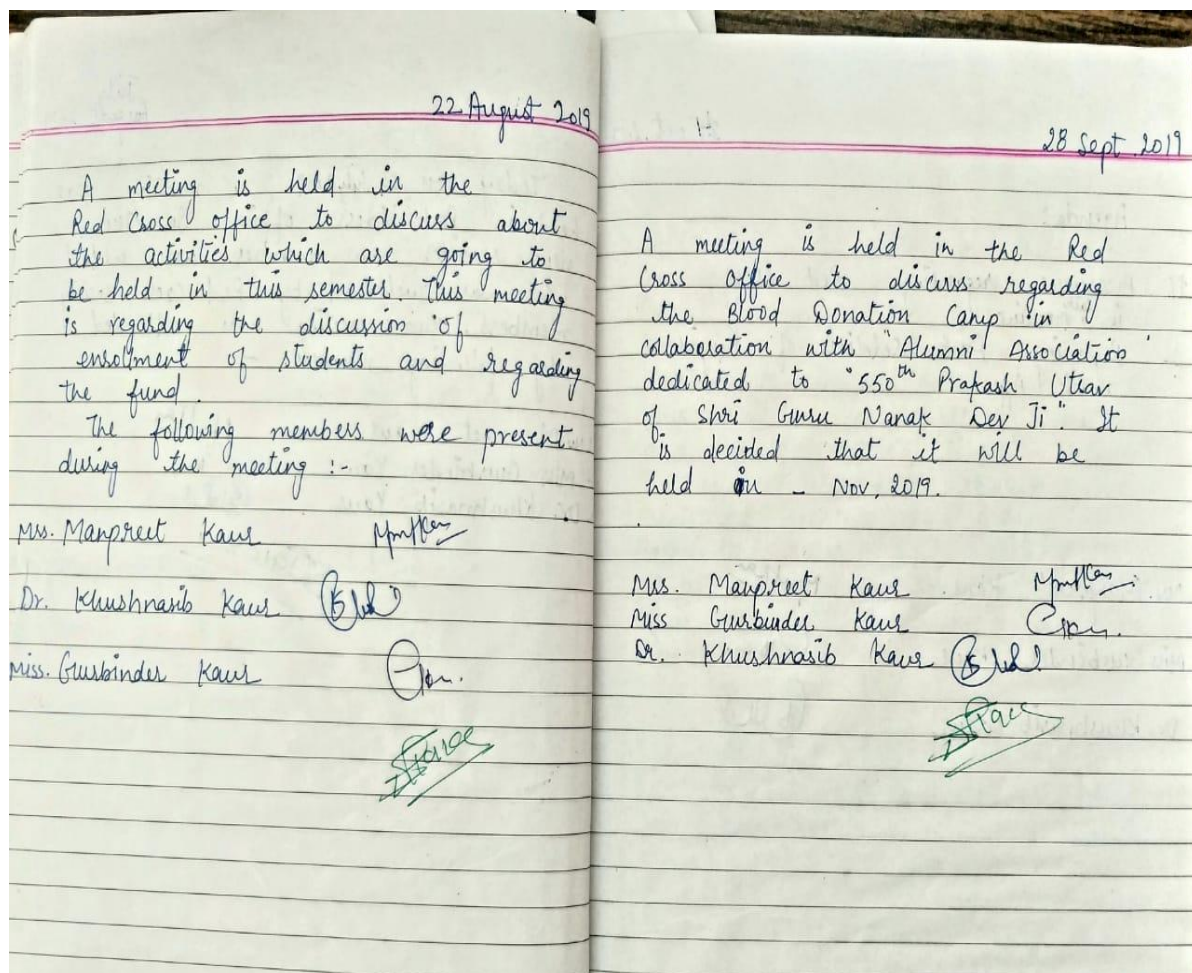 22 August 2019
A meeting is held in the
Red Cross office to discuss about
the activities which are going to
be held in this semester. This meeting
is regarding the discussion of
enrolment of students and regarding
the fund.
The following members were present
during the meeting :-
Mrs. Manpreet Kaur
Dr. Khushnasib Kaur
Miss. Gurbinder Kaur
28 Sept. 2019
A meeting is held in the Red
Cross Office to discuss regarding
the Blood Donation Camp in
collaboration with "Alumni Association"
dedicated to "550th Prakash Utsav
of Shri Guru Nanak Dev Ji". It
is decided that it will be
held in - Nov, 2019.
Mrs. Manpreet Kaur
Miss Gurbinder Kaur
Dr. Khushnasib Kaur